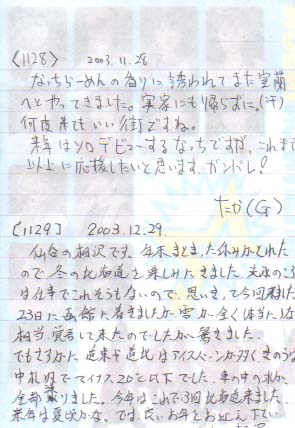 〈1128〉 2003.11.28
なっちらーめんの香りに誘われてまた室蘭
へとやってきました。実家にも帰らずに。(汗)
何度来てもいい街ですね。
来年はソロデビューするなっちですが、これまで
以上に応援したいと思います。ガンドレ!
たか(G)
[1129] 2003.12.29.
仙台の相沢です。年末まとまった休みがとれた
ので冬の北海道を楽しみにきました。
は仕事でこれそうもないので、思いきって今回来ました
23日に函館に着きましたが雪が全く
相当覚悟して来たのでしたが驚きました。
でもさすがに道東や道北はアイスバーンが多く
札内でマイナス20°以下でした。車の中の水が
全部凍りました。今年はこれで3回北海道来ました。
来年は夏次かな。では、良いお年をお迎え下さい